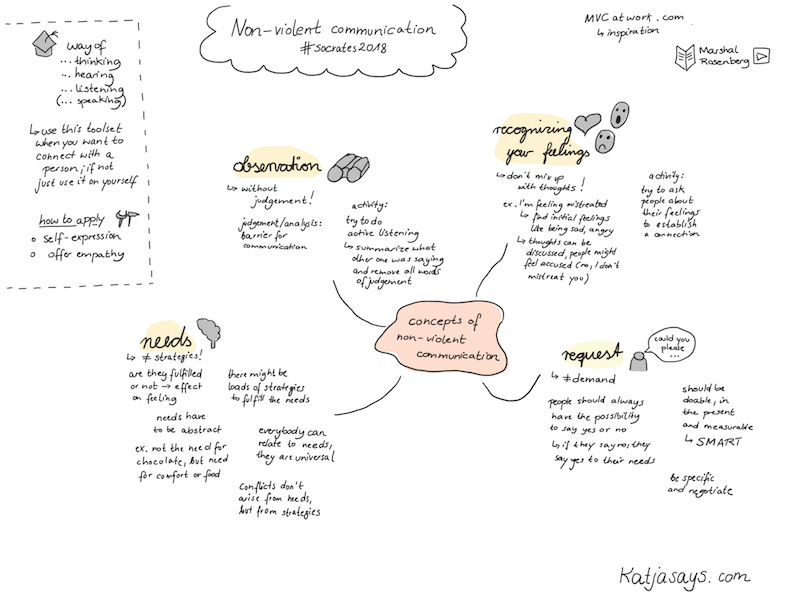 Non-violent communication
#socrates2018
MVCatwork.com
↳ inspiration
Marshal
Rosenberg
way of
... thinking
... hearing
... listening
(... speaking)
↳ use this toolset
when you want to
connect with a
person; if not
just use it on yourself
how to apply
o self-expression
o offer empathy
observation
↳ without
judgement!
judgement/analysis:
barrier for
communication
activity:
try to do
active listening
↳ summarize what
other one was saying
and remove all words
of judgement
recognizing
your feelings
↳ don't mix up
with thoughts!
ex. I'm feeling mistreated
↳ find initial feelings
like being sad, angry
↳ thoughts can be
discussed, people might
feel accused (no, I don't
mistreat you)
activity:
try to ask
people about
their feelings
to establish
a connection
concepts of
non-violent
communication
needs
↳ ≠ strategies!
are they fulfilled
or not → effect
on feeling
needs have
to be abstract
ex. not the need for
chocolate, but need
for comfort or food
there might be
loads of strategies
to fulfill the needs
everybody can
relate to needs,
they are universal
conflicts don't
arise from needs,
but from strategies
request
could you
please
...
↳ ≠ demand
people should always
have the possibility
to say yes or no
↳ if they say no, they
say yes to their needs
should be
doable, in
the present
and measurable
↳ SMART
be specific
and negotiate
Katjasays.com